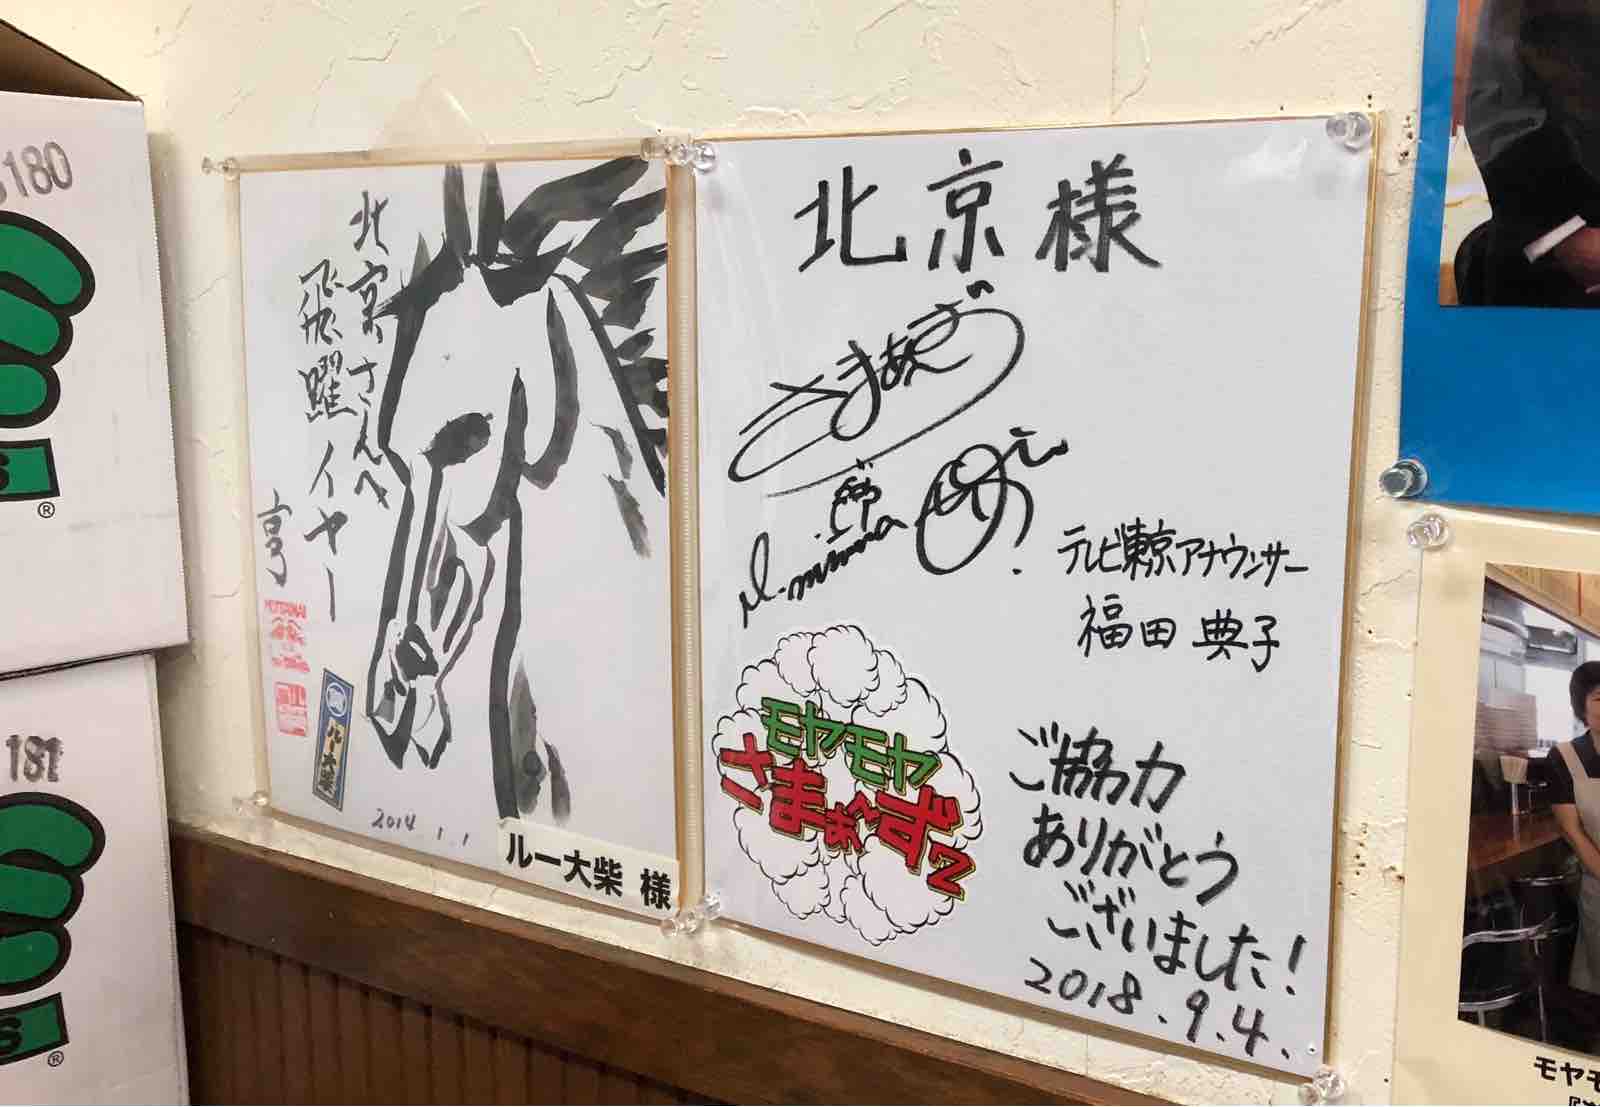 180
S
®
181
S
®
北京さんへ
飛躍イヤー
亨
MOTTAINAI
ルー大柴
2014.1.1
ルー大柴 様
北京様
さまぁ〜ず
テレビ東京アナウンサー
福田典子
モヤモヤ
さまぁ〜ず2
ご協力
ありがとう
ございました!
2018.9.4.
モヤモ